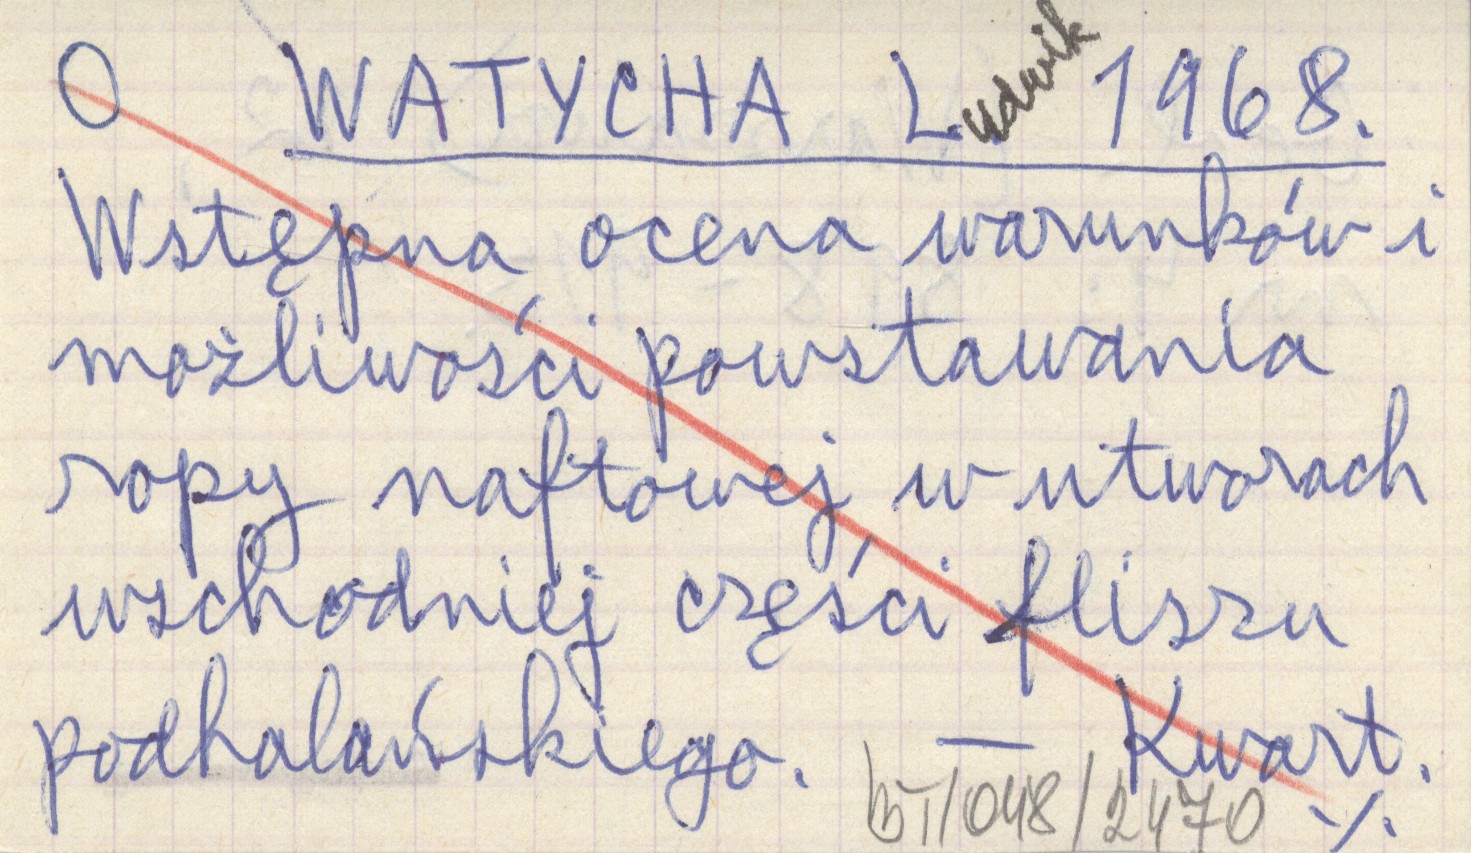 O WATYCHA Ludwik 1968.
Wstępna ocena warunków i
możliwości powstawania
ropy naftowej w utworach
wschodniej części fliszu
podhalańskiego. — Kwart.
BT/048/2470 ·/.